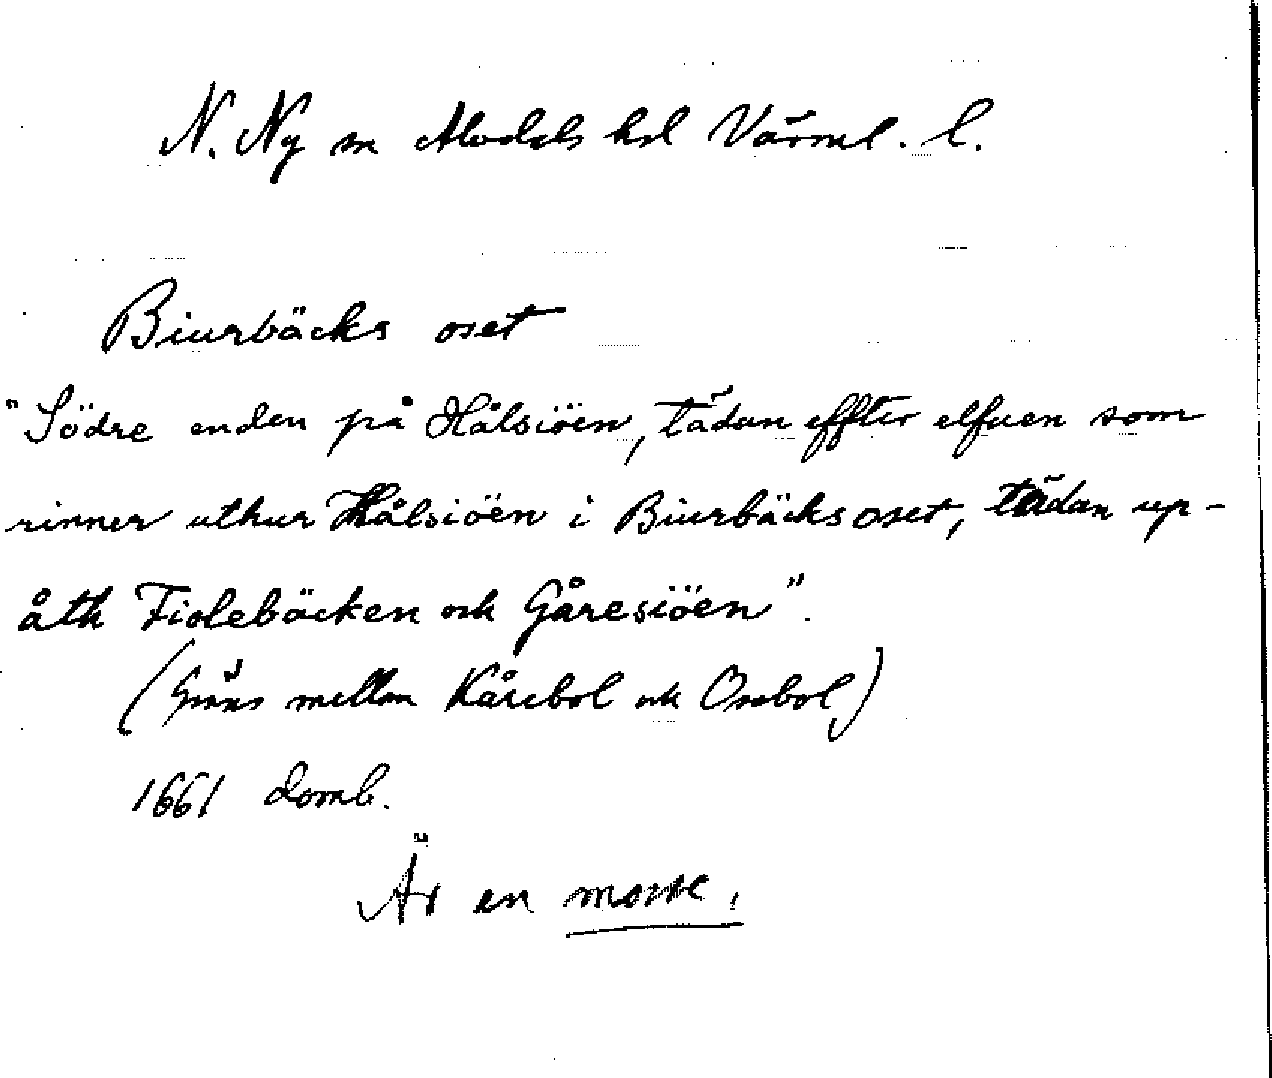 N. Ny sn Älvdals hd Värml. l.
Biurbäcks oset
"Södre enden på Hålsiöen, tädan effter elfuen som
rinner uthur Hålsiöen i Biurbäcks oset, tädan up-
åth Fiolebäcken och Gåresiöen".
(Gräns mellan Kårebol och Osebol)
1661 domb.
Är en mosse.